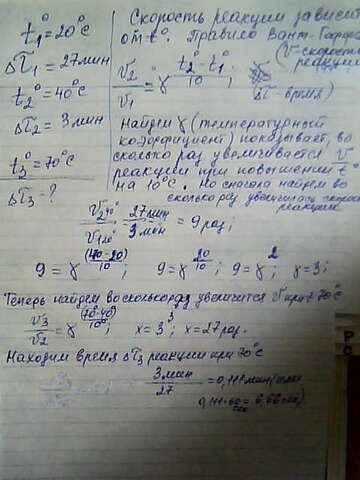 t₁°=20°C
Δτ₁=27мин
t₂°=40°C
Δτ₂=3мин
t₃°=70°C
Δτ₃=?
Скорость реакции зависит
от t°. Правило Вант-Гоффа
V₂/V₁ = γ^((t₂°-t₁°)/10); (V-скорость реакции
Δτ-время)
Найдём γ (температурный
коэффициент) показывает, во
сколько раз увеличивается V
реакции при повышении t°
на 10°C. Но сначала найдём во
сколько раз увеличилась скорость
реакции
V₂40°/V₁20° = 27мин/3мин = 9 раз;
9=γ^((40-20)/10); 9=γ^(20/10); 9=γ²; γ=3;
Теперь найдём во сколько раз увеличится V при t 70°C
V₃/V₂=γ^((70°-40°)/10°); x=3³; x=27раз.
Находим время Δτ₃ реакции при 70°C
3мин/27 = 0,111мин
0,111·60сек = 6,66сек)